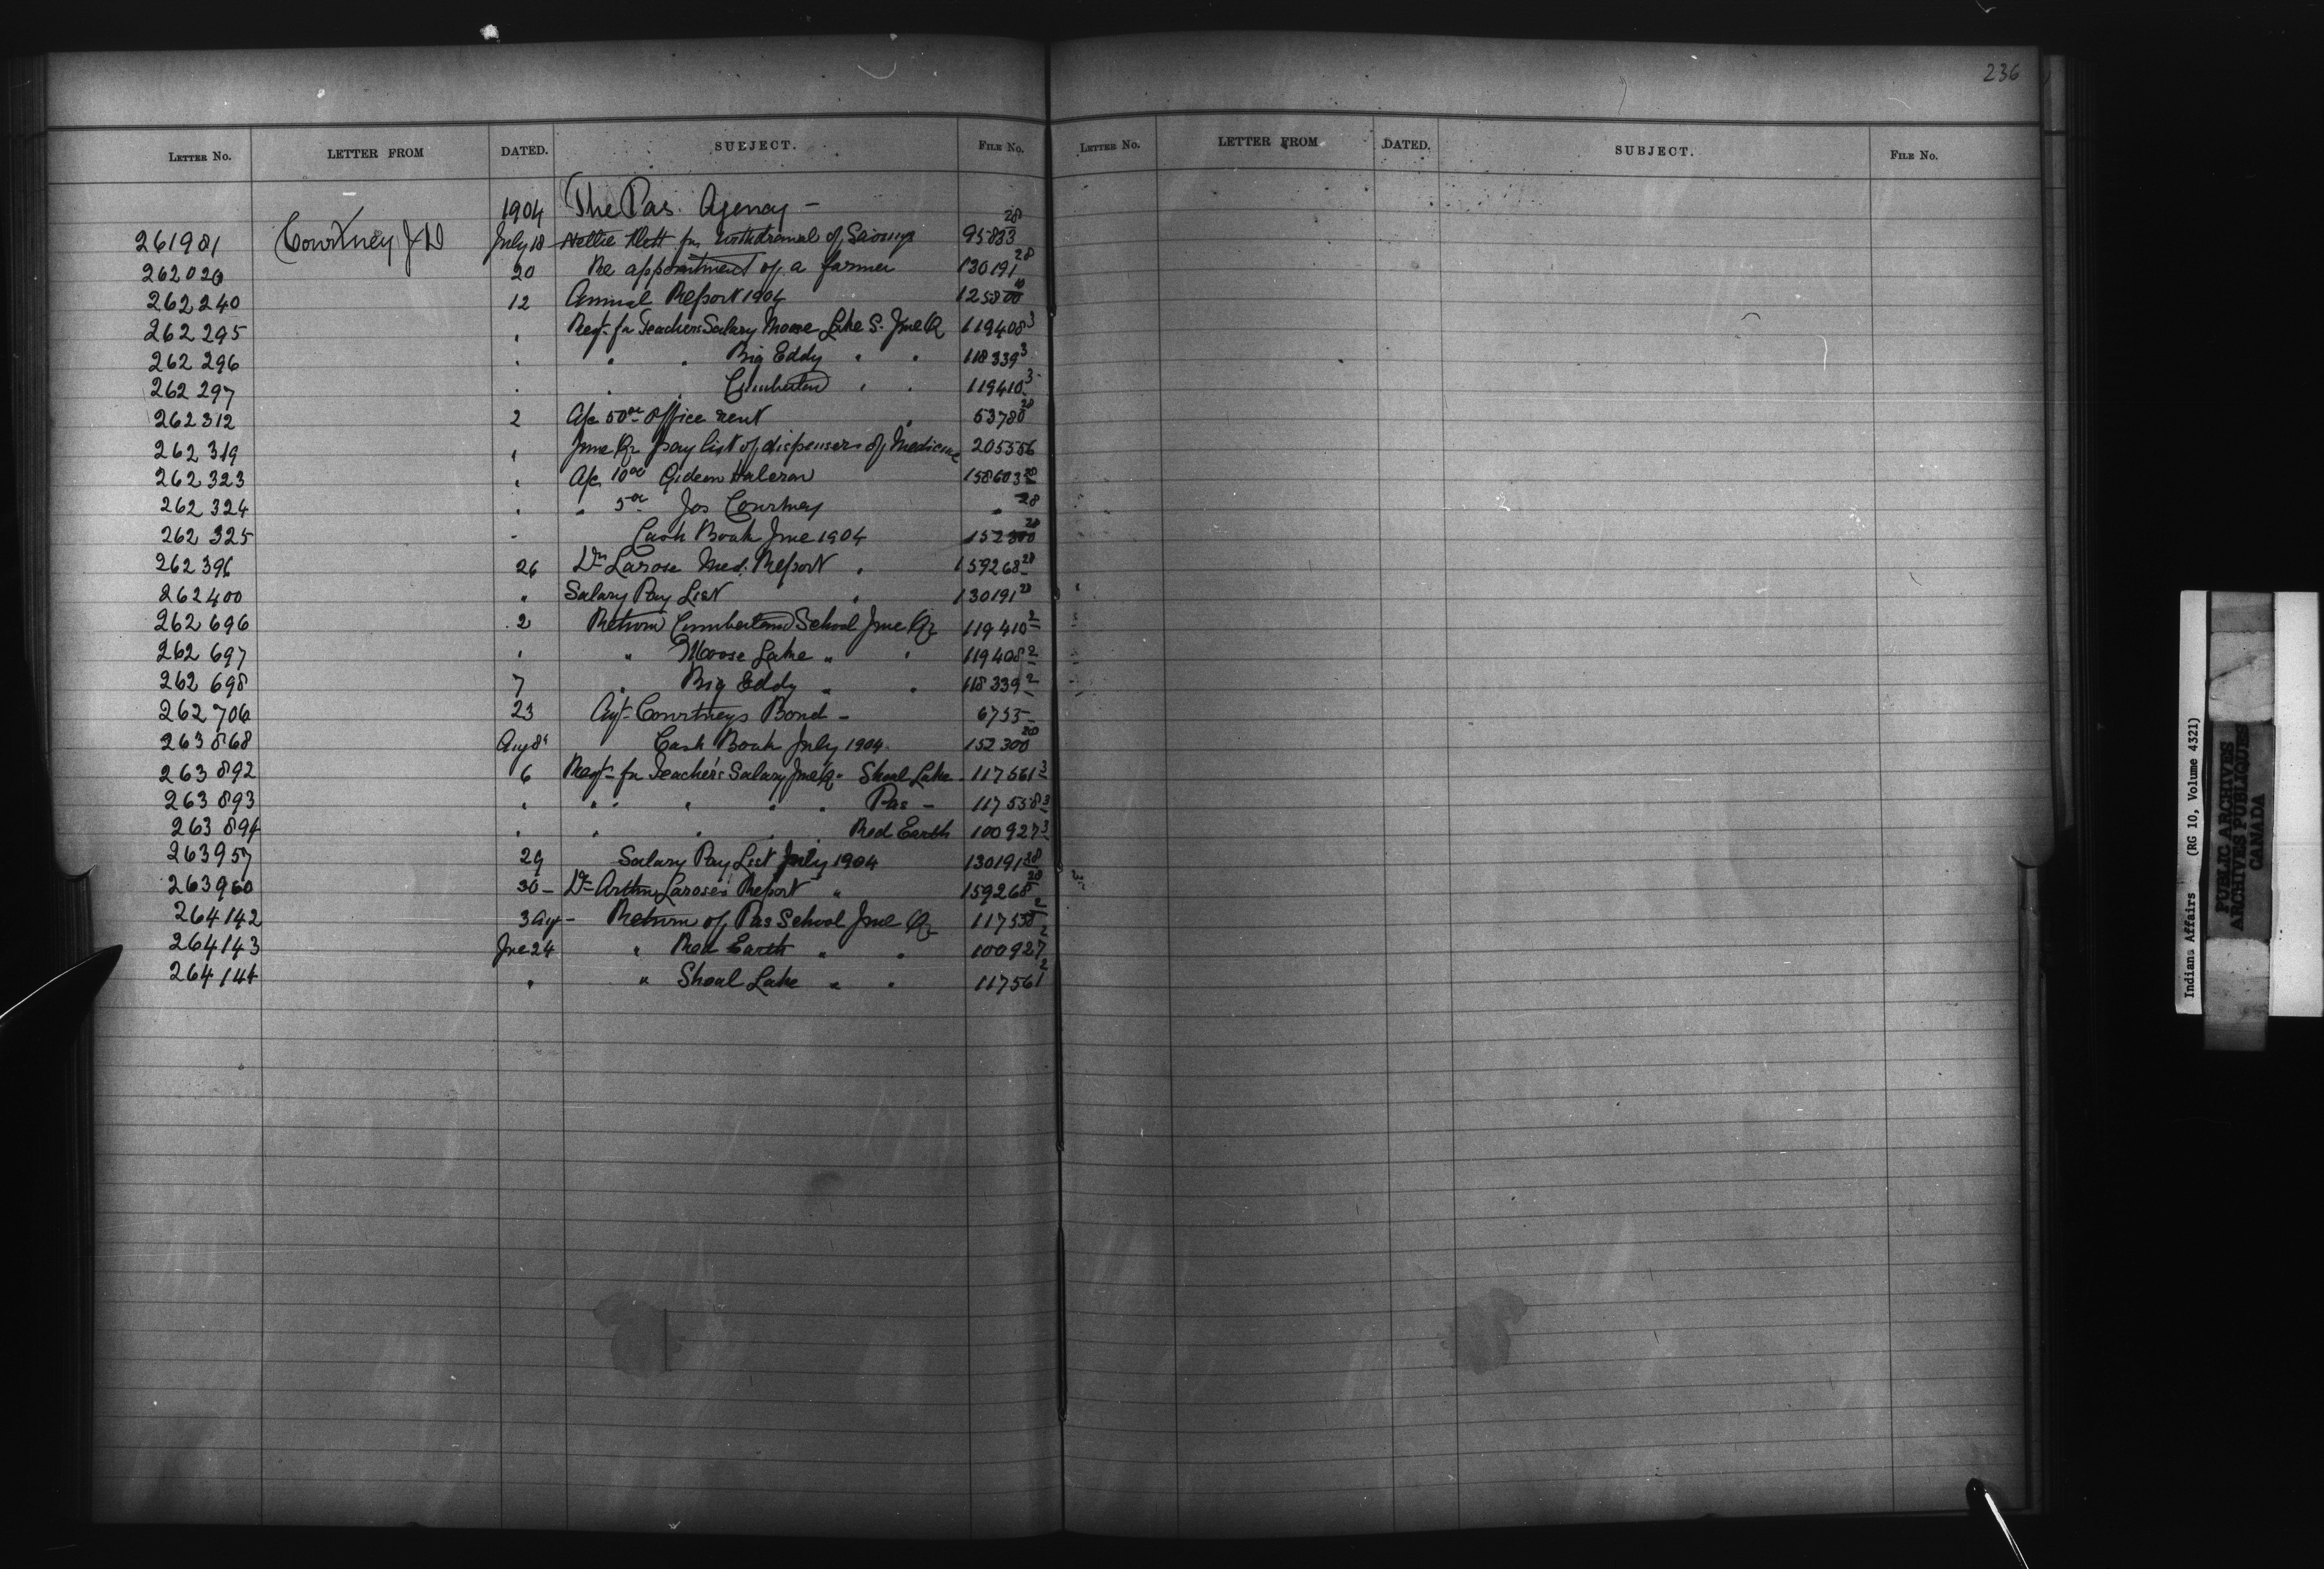 236
LETTER NO. LETTER FROM DATED. SUBJECT. FILE No. LETTER No. LETTER FROM DATED. SUBJECT. FILE No.
1904 The Pas. Agency -
261981 Courtney J D July 18 Nettie for withdrawal of Savings 95833 28
262020 20 Re appointment of a farmer 130191 28
262240 12 Annual Report 1904 125800 10
262295 " Reqt. for Teachers Salary Moose Lake S. June Qr 119408 3
262296 " " " Big Eddy " " 118339 3
262297 " " " Cumberland " " 119410 3
262312 2 A/c 50 00 Office rent " 53780 28
262319 " June Qr pay list of dispensers of Medicine 205556
262323 " A/c 10 00 Gideon Halcrow 158603 28
262324 " " 5 00 Jos Courtney " 28
262325 " Cash Book June 1904 152300 28
262396 26 Dr Larose Med. Report " 159268 28
262400 " Salary Pay List " 130191 28
262696 2 Return Cumberland School June Qr 119410 2
262697 " " Moose Lake " " 119408 2
262698 7 " Big Eddy " " 118339 2
262706 23 Agt Courtneys Bond - 6755
263868 Aug 8 Cash Book July 1904 152300 28
263892 6 Reqt for Teacher's Salary June Qr Shoal Lake 117561 3
263893 " " " " " Pas - 117558 3
263894 " " " " Red Earth 100927 3
263957 29 Salary Pay List July 1904 130191 28
263960 30 - Dr Arthur Larose's Report " 159268 28
264142 3 Aug - Return of Pas School June Qr 117558 2
264143 June 24 " Red Earth " " 100927 2
264144 " " Shoal Lake " " 117561 2
Indians Affairs (RG 10, Volume 4321)
PUBLIC ARCHIVES
ARCHIVES PUBLIQUES
CANADA